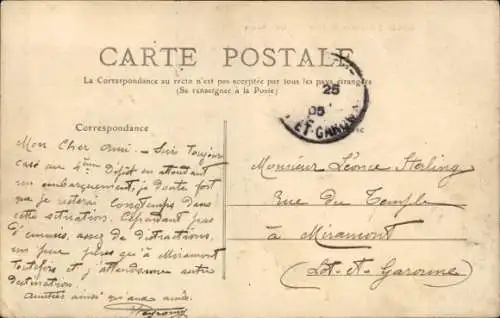 CARTE POSTALE
La Correspondance au recto n'est pas acceptée par tous les pays étrangers
(Se renseigner à la Poste)
25
05
ET-GARON
Correspondance
Mon Cher ami. - Suis toujours
casé au 4ème Dépôt en attendant
un embarquement, je doute fort
que je resterai longtemps dans
cette situation. Cependant pas
d'ennuis, assez de distractions,
un peu plus qu'à Miramont
Toutefois et j'attends une autre
destination.
Amitiés ainsi qu'aux amis.
Monsieur Léonce Sterling
Rue du Temple
à Miramont
(Lot-et-Garonne)